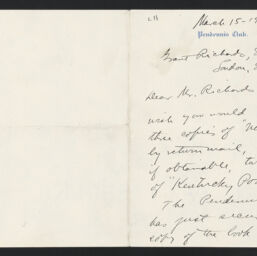 March 15-19
Pendennis Club.
Grant Richards, E
London, E
Dear Mr. Richards
wish you would
three copies of "Ve
by return mail,
if obtainable, tw
of "Kentucky Poe
The Pendenni
has just secur
copy of the book